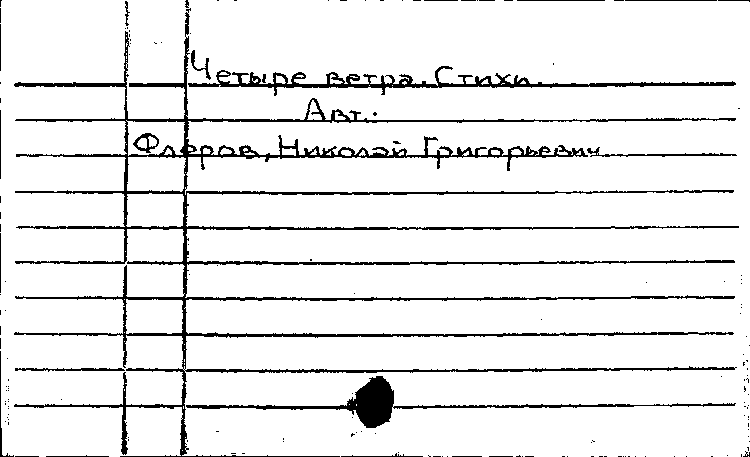 Четыре ветра. Стихи.
Авт.:
Флеров, Николай Григорьевич